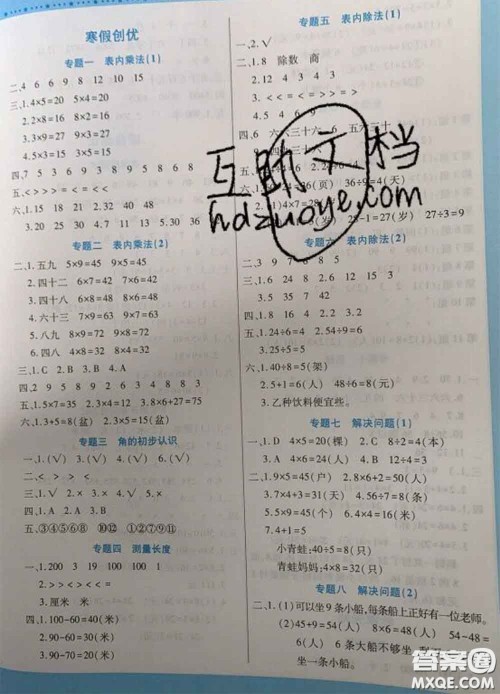 寒假创优
专题一 表内乘法(1)
二、4 6 6 9 8 12 10 15
三、1.4×5=20 5×4=20
2.2×8=16 8×2=16
3.3×9=27 9×3=27
4.5×3=15 3×5=15
四、7 5 3 9 3 8 9 5 8 9 6 8
五、< > > > = < = < <
六、1.15 18 21 2.32 40 48
3.20 25 30 4.7 11 13 5.30 36
专题二 表内乘法(2)
一、1.五九 5×9=45 9×5=45
2.四十二 6×7=42 7×6=42
3.四十八 6×8=48 8×6=48
4.六十三 7×9=63 9×7=63
5.八九 8×9=72 9×8=72
6.四八 4×8=32 8×4=32
三、1.C 2.B 3.A
四、2 9 5 8 9 2 6 3 4 8 8 3
五、1.5×7=35 2.3×4=12 3.8×6+27=75
六、1.3+5=8(盆)
专题三 角的初步认识
一、1.(√) 3.(√) 4.(√) 6.(√)
二、< > > <
三、1.√ 2.× 3.× 4.× 5.√
四、1.A 2.A 3.B
五、③④⑤⑥⑧ ⑩⑫ ①②⑦⑨⑪
专题四 测量长度
一、1.200 3 19 100 100 1
2.< > > < > =
3.厘米 米
四、1.100-60=40(米)
2.90-60=30(米)
3.90-70=20(米)
专题五 表内除法(1)
一、2.√
二、1.8 除数 商
2.12 4 3 3
3.< < = > > =
四、6 六六三十六 6 五六三十
27-1=27(岁) 27÷3=9
专题六 表内除法(2)
二、3 9 7 6 8 5
三、1.6 24 8 2.6 12 15 3
3.> < = > < <
四、1.8 16 2.1 9
五、1.24÷6=4 2.54÷9=6
3.25÷5=5
六、1.40÷8=5(架)
2.5+1=6(人) 48÷6=8(元)
3.乙种饮料便宜些。
专题七 解决问题(1)
一、1.D 4×5=20(棵) 2.C 8÷2=4(本)
3.A 4×6=24(人) 4.B 12÷4=3
二、1.9×5=45(户) 2.8×6+2=50(人)
3.7×4+3=31(人) 4.3×7-1=20(人)
5.56÷7=8(条)
6.9×5+4=49(人) 6.4×4=16(米)
7.4+1=5
小青蛙:40÷5=8(只)
青蛙妈妈:4×8=32(只)
专题八 解决问题(2)
二、1.(1)可以坐9条小船,每条船上正好有一位老师。
(2)45+9=54(人) 8×6=48(人) 54-48=
6(人) 6条大船不够坐,
坐一条小船。
互助文档
hdzuoye.com
答案圈
MXQE.COM